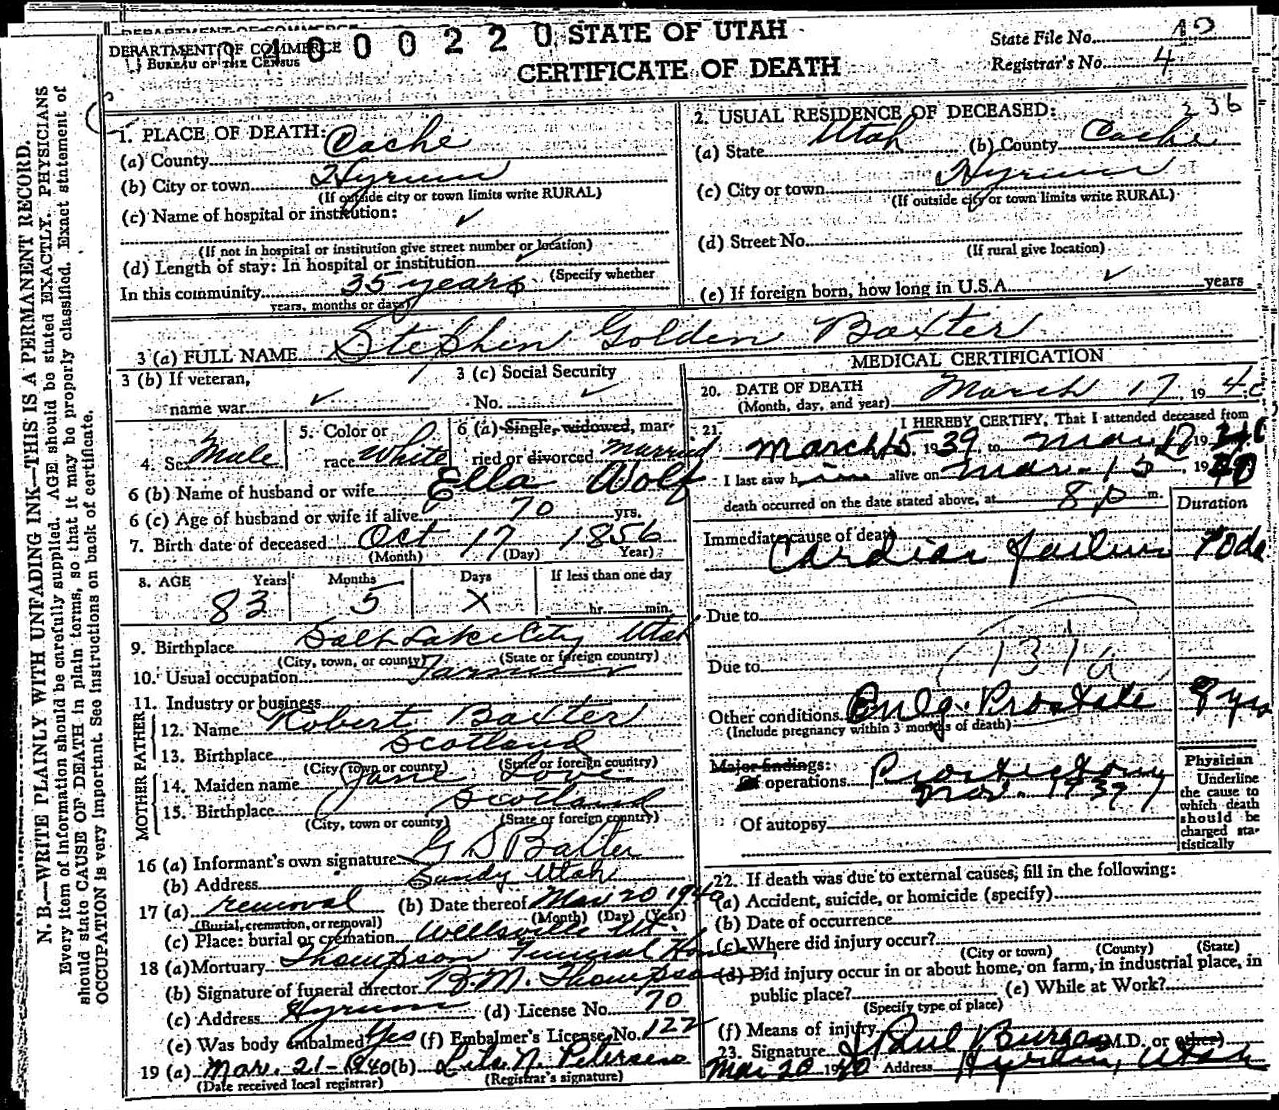 DEPARTMENT OF COMMERCE
BUREAU OF THE CENSUS
400220
STATE OF UTAH
CERTIFICATE OF DEATH
State File No.
Registrar's No. 4
236
N. B.—WRITE PLAINLY WITH UNFADING INK—THIS IS A PERMANENT RECORD.
Every item of information should be carefully supplied. AGE should be stated EXACTLY. PHYSICIANS
should state CAUSE OF DEATH in plain terms, so that it may be properly classified. Exact statement of
OCCUPATION is very important. See instructions on back of certificate.
1. PLACE OF DEATH:
(a) County Cache
(b) City or town Hyrum
(If outside city or town limits write RURAL)
(c) Name of hospital or institution: ✓
(If not in hospital or institution give street number or location)
(d) Length of stay: In hospital or institution ✓
(Specify whether
In this community 35 years
years, months or days)
2. USUAL RESIDENCE OF DECEASED:
(a) State Utah (b) County Cache
(c) City or town Hyrum
(If outside city or town limits write RURAL)
(d) Street No.
(If rural give location)
(e) If foreign born, how long in U.S.A. ✓ years
3 (a) FULL NAME Stephen Golden Baxter
3 (b) If veteran,
name war ✓
3 (c) Social Security
No. ✓
4. Sex Male
5. Color or
race White
6 (a) Single, widowed, mar-
ried or divorced Married
6 (b) Name of husband or wife Ella Wolf
6 (c) Age of husband or wife if alive 70 yrs.
7. Birth date of deceased Oct 17 1856
(Month) (Day) Year)
8. AGE Years Months Days If less than one day
83 5 X hr. min.
9. Birthplace Salt Lake City Utah
(City, town, or county) (State or foreign country)
10. Usual occupation Farmer
11. Industry or business
FATHER
12. Name Robert Baxter
13. Birthplace Scotland
(City, town or county) (State or foreign country)
MOTHER
14. Maiden name Jane Love
15. Birthplace Scotland
(City, town or county) (State or foreign country)
16 (a) Informant's own signature G S Baxter
(b) Address Sandy Utah
17 (a) removal (b) Date thereof Mar 20 1940
(Burial, cremation, or removal) (Month) (Day) (Year)
(c) Place: burial or cremation Wellsville Ut.
18 (a) Mortuary Thompson Funeral Home
(b) Signature of funeral director B.M. Thompson
(c) Address Hyrum (d) License No. 70
(e) Was body embalmed? Yes (f) Embalmer's License No. 122
19 (a) Mar. 21-1940 (b) N. Petersen
(Date received local registrar) (Registrar's signature)
MEDICAL CERTIFICATION
20. DATE OF DEATH
(Month, day, and year) March 17, 1940
21. I HEREBY CERTIFY, That I attended deceased from
March 15, 1939 to Mar 17 1940
I last saw him alive on Mar. 15, 1940
death occurred on the date stated above, at 8 p m.
Duration
Immediate cause of death
Cardiac failure
Due to
Due to
131a
Other conditions Enlg. Prostate 9 yrs
(Include pregnancy within 3 months of death)
Major findings:
Of operations Prostectomy
Nov. 1939
Of autopsy
Physician
Underline
the cause to
which death
should be
charged sta-
tistically
22. If death was due to external causes, fill in the following:
(a) Accident, suicide, or homicide (specify)
(b) Date of occurrence
(c) Where did injury occur?
(City or town) (County) (State)
(d) Did injury occur in or about home, on farm, in industrial place, in
public place? (e) While at Work?
(Specify type of place)
(f) Means of injury
23. Signature Paul Burgess M.D. or other)
Mar 20 1940 Address Hyrum, Utah